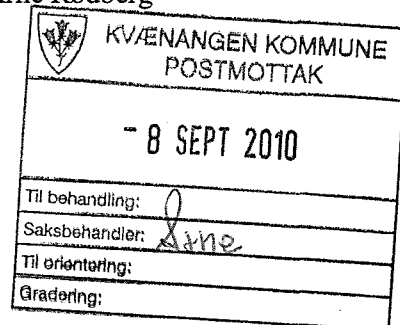 Rødberg
KVÆNANGEN KOMMUNE
POSTMOTTAK
- 8 SEPT 2010
Til behandling:
Saksbehandler: Arne
Til orientering:
Gradering: